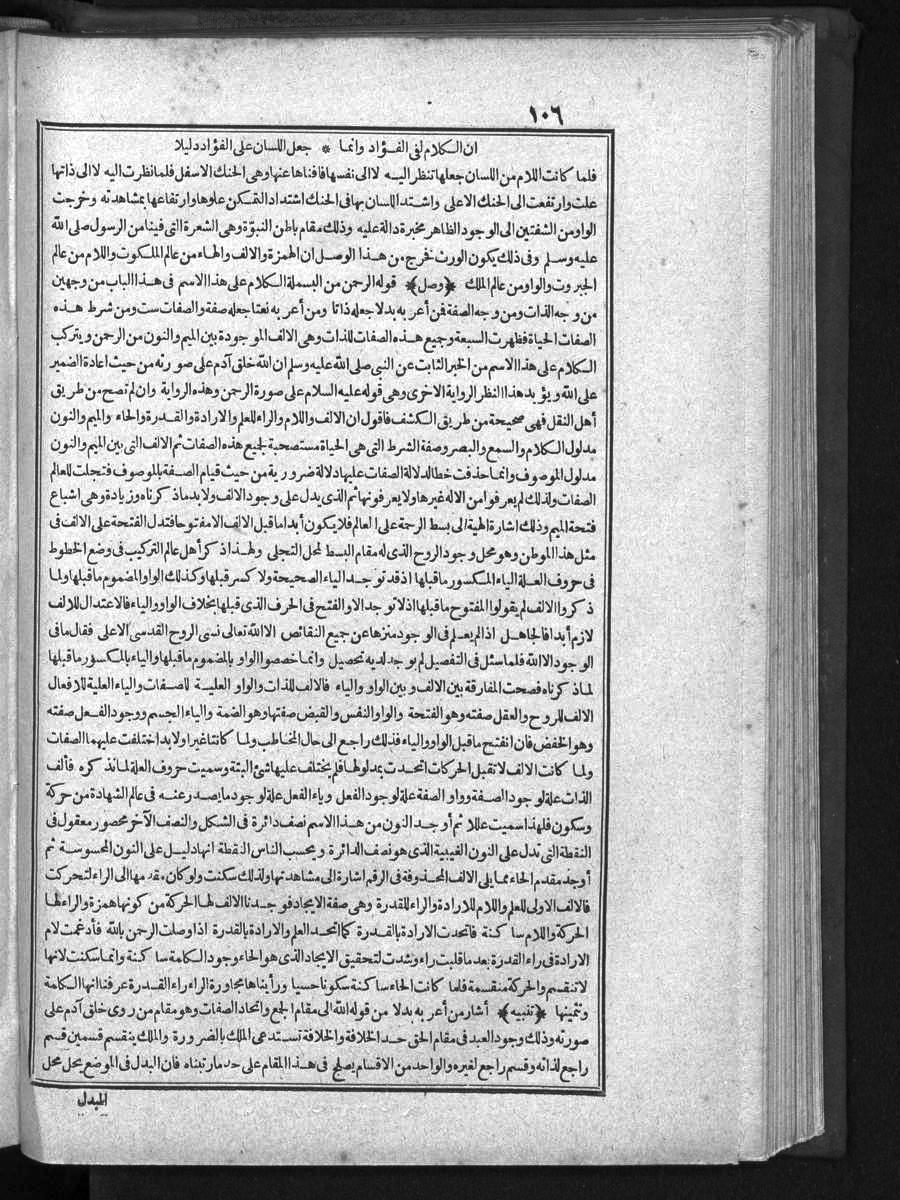 ١٠٦
ان الكلام لفى الفؤاد وانما * جعل اللسان على الفؤاد دليلا
فلما كانت اللام من اللسان جعلها تنظر اليه لا الى نفسها فافناها عنها وهى الحنك الاسفل فلما نظرت اليه لا الى ذاتها
علت وارتفعت الى الحنك الاعلى واشتد اللسان بها فى الحنك اشتداد التمكن علوها وارتفاعها بمشاهدته وخرجت
الواو من الشفتين الى الوجود الظاهر مخبرة دالة عليه وذلك مقام باطن النبوّة وهى الشعرة التى فينا من الرسول صلى الله
عليه وسلم وفى ذلك يكون الورث نخرج من هذا الوصل ان الهمزة والالف والهاء من عالم الملكوت واللام من عالم
الجبروت والواو من عالم الملك ﴿وصل﴾ قوله الرحمن من البسملة الكلام على هذا الاسم فى هذا الباب من وجهين
من وجه الذات ومن وجه الصفة فن أعر به بدلا جعله ذاتا ومن أعربه نعتا جعله صفة والصفات ست ومن شرط هذه
الصفات الحياة فظهرت السبعة وجميع هذه الصفات للذات وهى الالف الموجودة بين الميم والنون من الرحمن ويتركب
الكلام على هذا الاسم من الخبر الثابت عن النبى صلى الله عليه وسلم ان الله خلق آدم على صورته من حيث اعادة الضمير
على الله و يؤ يد هذا النظر الرواية الاخرى وهى قوله عليه السلام على صورة الرحمن وهذه الرواية وان لم تصح من طريق
أهل النقل فهى صحيحة من طريق الكشف فاقول ان الالف واللام والراء للعلم والارادة والقدرة والحاء والميم والنون
مدلول الكلام والسمع والبصر وصفة الشرط التى هى الحياة مستصحبة لجميع هذه الصفات ثم الالف التى بين الميم والنون
مدلول الموصوف وانما حذفت خطا لدلالة الصفات عليها دلالة ضرورية من حيث قيام الصفة بالموصوف فتجلت للعالم
الصفات ولذلك لم يعرفوا من الاله غيرها ولا يعرفونها ثم الذى يدل على وجود الالف ولابد ماذكرناه وزيادة وهى اشباع
فتحة الميم وذلك اشارة الهية الى بسط الرحمة على العالم فلا يكون أبدا ما قبل الالف الا مفتوحا فتدل الفتحة على الالف فى
مثل هذا الموطن وهو محل وجود الروح الذى له مقام البسط لمحل التجلى ولهذا ذكر أهل عالم التركيب فى وضع الخطوط
فى حروف العلة الياء المكسور ما قبلها اذقد توجد الياء الصحيحة ولا كسر قبلها وكذلك الواو المضموم ما قبلها ولما
ذكروا الالف لم يقولوا المفتوح ما قبلها اذلا توجد الا والفتح فى الحرف الذى قبلها بخلاف الواو والياء فالاعتدال للالف
لازم أبدا فالجاهل اذا لم يعلم فى الوجود منزها عن جميع النقائص الا الله تعالى نسى الروح القدسى الاعلى فقال ما فى
الوجود الا الله فلما سئل فى التفصيل لم يوجد لديه تحصيل وانما خصصوا الواو بالمضموم ما قبلها والياء بالمكسور ما قبلها
لما ذكرناه فصحت المفارقة بين الالف وبين الواو والياء فالالف للذات والواو العلية للصفات والياء العلية للافعال
الالف للروح والعقل صفته وهو الفتحة والواو النفس والقبض صفتها وهو الضمة والياء الجسم ووجود الفعل صفته
وهو الخفض فان انفتح ما قبل الواو والياء فذلك راجع الى حال المخاطب ولما كانتا غيرا ولابد اختلفت عليهما الصفات
ولما كانت الالف لا تقبل الحركات اتحدت بمدلولها فلم يختلف عليها شئ البتة وسميت حروف العلة لما نذكره فألف
الذات علة لوجود الصفة وواو الصفة علة لوجود الفعل وياء الفعل علة لوجود ما يصدر عنه فى عالم الشهادة من حركة
وسكون فلهذا سميت عللا ثم أوجد النون من هذا الاسم نصف دائرة فى الشكل والنصف الآخر محصور معقول فى
النقطة التى تدل على النون الغيبية الذى هو نصف الدائرة ويحسب الناس النقطة انها دليل على النون المحسوسة ثم
أوجد مقدم الحاء مما يلى الالف المحذوفة فى الرقم اشارة الى مشاهدتها ولذلك سكنت ولوكان مقدمها الى الراء لتحركت
فالالف الاولى للعلم واللام للارادة والراء للقدرة وهى صفة الايجاد فوجدنا الالف لها الحركة من كونها همزة والراء لها
الحركة واللام ساكنة فاتحدت الارادة بالقدرة كما اتحد العلم والارادة بالقدرة اذا وصلت الرحمن بالله فأدغمت لام
الارادة فى راء القدرة بعد ما قلبت راء وشدت لتحقيق الايجاد الذى هو الحاء وجود الكلمة ساكنة وانما سكنت لانها
لا تنقسم والحركة منقسمة فلما كانت الحاء ساكنة سكونا حسيا ورأيناها مجاورة الراء راء القدرة عرفنا انها الكلمة
وتثمينها ﴿تنبيه﴾ أشار من أعربه بدلا من قوله الله الى مقام الجمع واتحاد الصفات وهو مقام من روى خلق آدم على
صورته وذلك وجود العبد فى مقام الحق حد الخلافة والخلافة تستدعى الملك بالضرورة والملك ينقسم قسمين قسم
راجع لذاته وقسم راجع لغيره والواحد من الاقسام يصلح فى هذا المقام على حد مارتبناه فان البدل فى الموضع يحل محل
المبدل